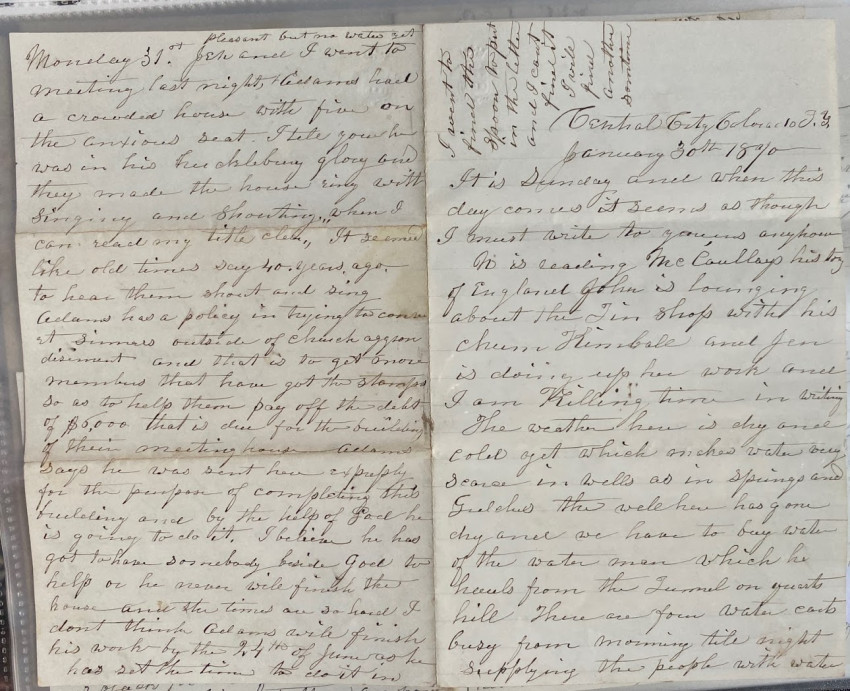 Central City Colorado T.y
January 30th 1870
It is Sunday and when this
day comes it seems as though
I must write to youens anyhow
is reading McCaullays history
of England John is lounging
about the Tin Shop with his
chum Kimball and Jen
is doing up her work and
I am Killing time in writing
The weather here is dry and
cold yet which makes water very
scarce in wells as in springs and
Gulches the well here has gone
dry and we have to buy water
of the water man which he
hauls from the Tunnel on quarts
hill There are four water carts
busy from morning till night
supplying the people with water
I went to
find the
spoon to put
in the letter
and I cant
find it
I will
find
another
sometime
pleasant but no water yet
Monday 31st. Jen and I went to
meeting last night, Adams had
a crowded house with five on
the anxious seat. I tele you he
was in his hucklebury glory and
they made the house ring with
singing and shouting,, when I
can read my title clear,, It seemed
like old times say 40. years. ago.
to hear them shout and sing
Adams has a policy in trying to conve
rt sinners outside of church aggran
disiment and that is to get more
members that have got the stamps
so as to help them pay off the debt
of $6,000 that is due for the building
of their meeting house Adams
says he was sent here expresly
for the purpose of completing this
building and by the help of God he
is going to do it, I believe he has
got to have somebody beside God to
help or he never wile finish the
house and the times are so hard I
dont think Adams wile finish
his work by the 24th of June as he
has set the time to do it in